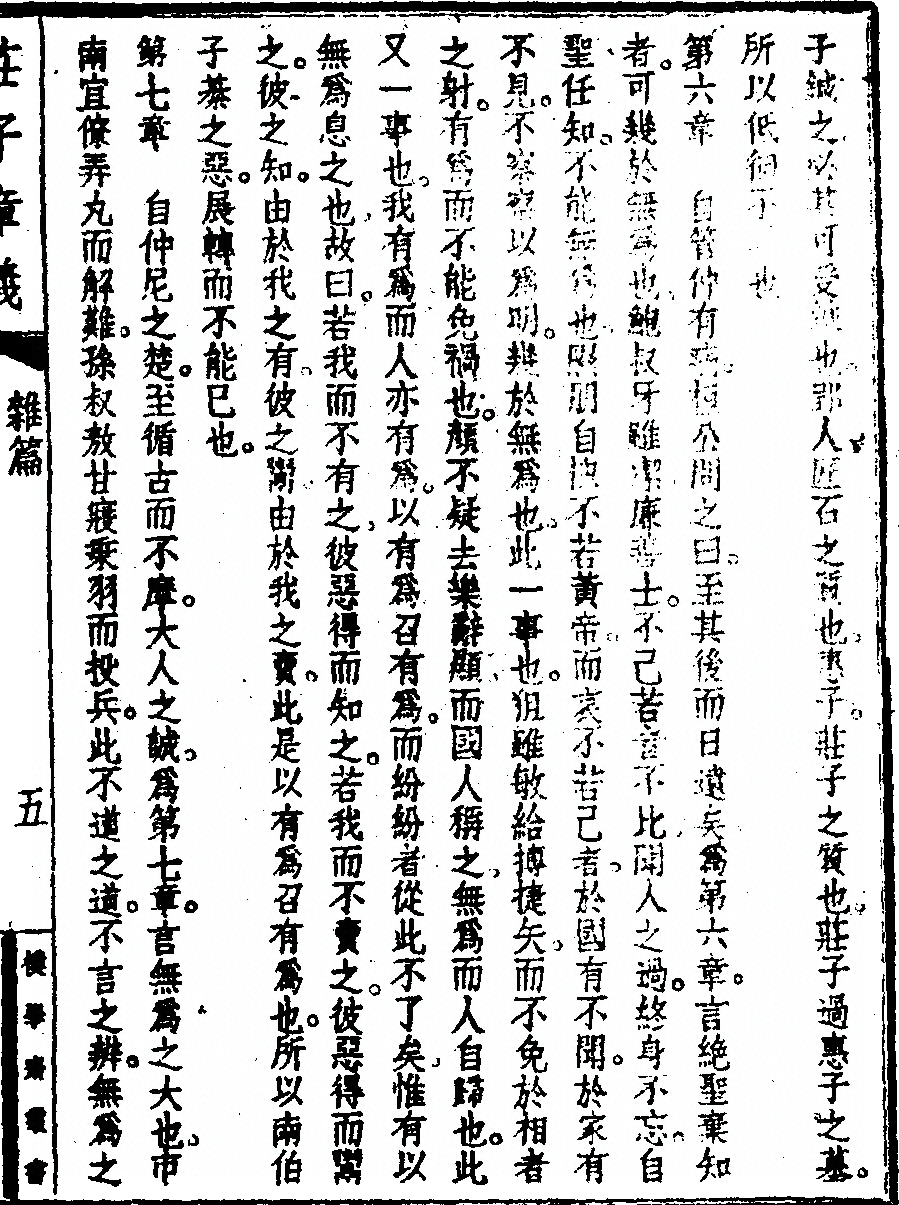 子誠之以其可受誠也郢人匠石之質也惠子莊子之質也莊子過惠子之墓。
所以低徊不 也
第六章　自管仲有病桓公問之曰至其後而日遠矣爲第六章。言絶聖棄知
者。可幾於無爲也鮑叔牙雖潔廉善士。不己若者不比聞人之過。終身不忘。自
聖任知。不能無爲也。隰朋自愧不若黃帝。而哀不若己者。於國有不聞。於家有
不見。不察察以爲明。幾於無爲也。此一事也。狙雖敏給搏捷矢。而不免於相者
之射。有爲而不能免禍也。顏不疑去樂辭顯。而國人稱之。無爲而人自歸也。此
又一事也。我有爲而人亦有爲。以有爲召有爲。而紛紛者從此不了矣。惟有以
無爲息之也。故曰。若我而不有之。彼惡得而知之。若我而不賣之。彼惡得而鬻
之。彼之知。由於我之有。彼之鬻。由於我之賣。此是以有爲召有爲也。所以南伯
子綦之惡。展轉而不能已也。
第七章　自仲尼之楚。至循古而不摩。大人之誠。爲第七章。言無爲之大也。市
南宜僚弄丸而解難。孫叔敖甘寢秉羽而投兵。此不道之道。不言之辨。無爲之
莊子章義
雜篇
五
樸學齋叢書